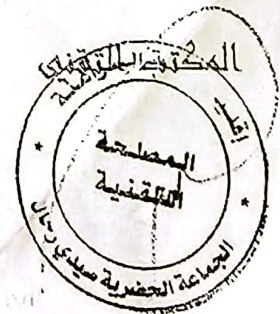 المكتب التقني
المصلحة
التقنية
الجماعة الحضرية سيدي رحال